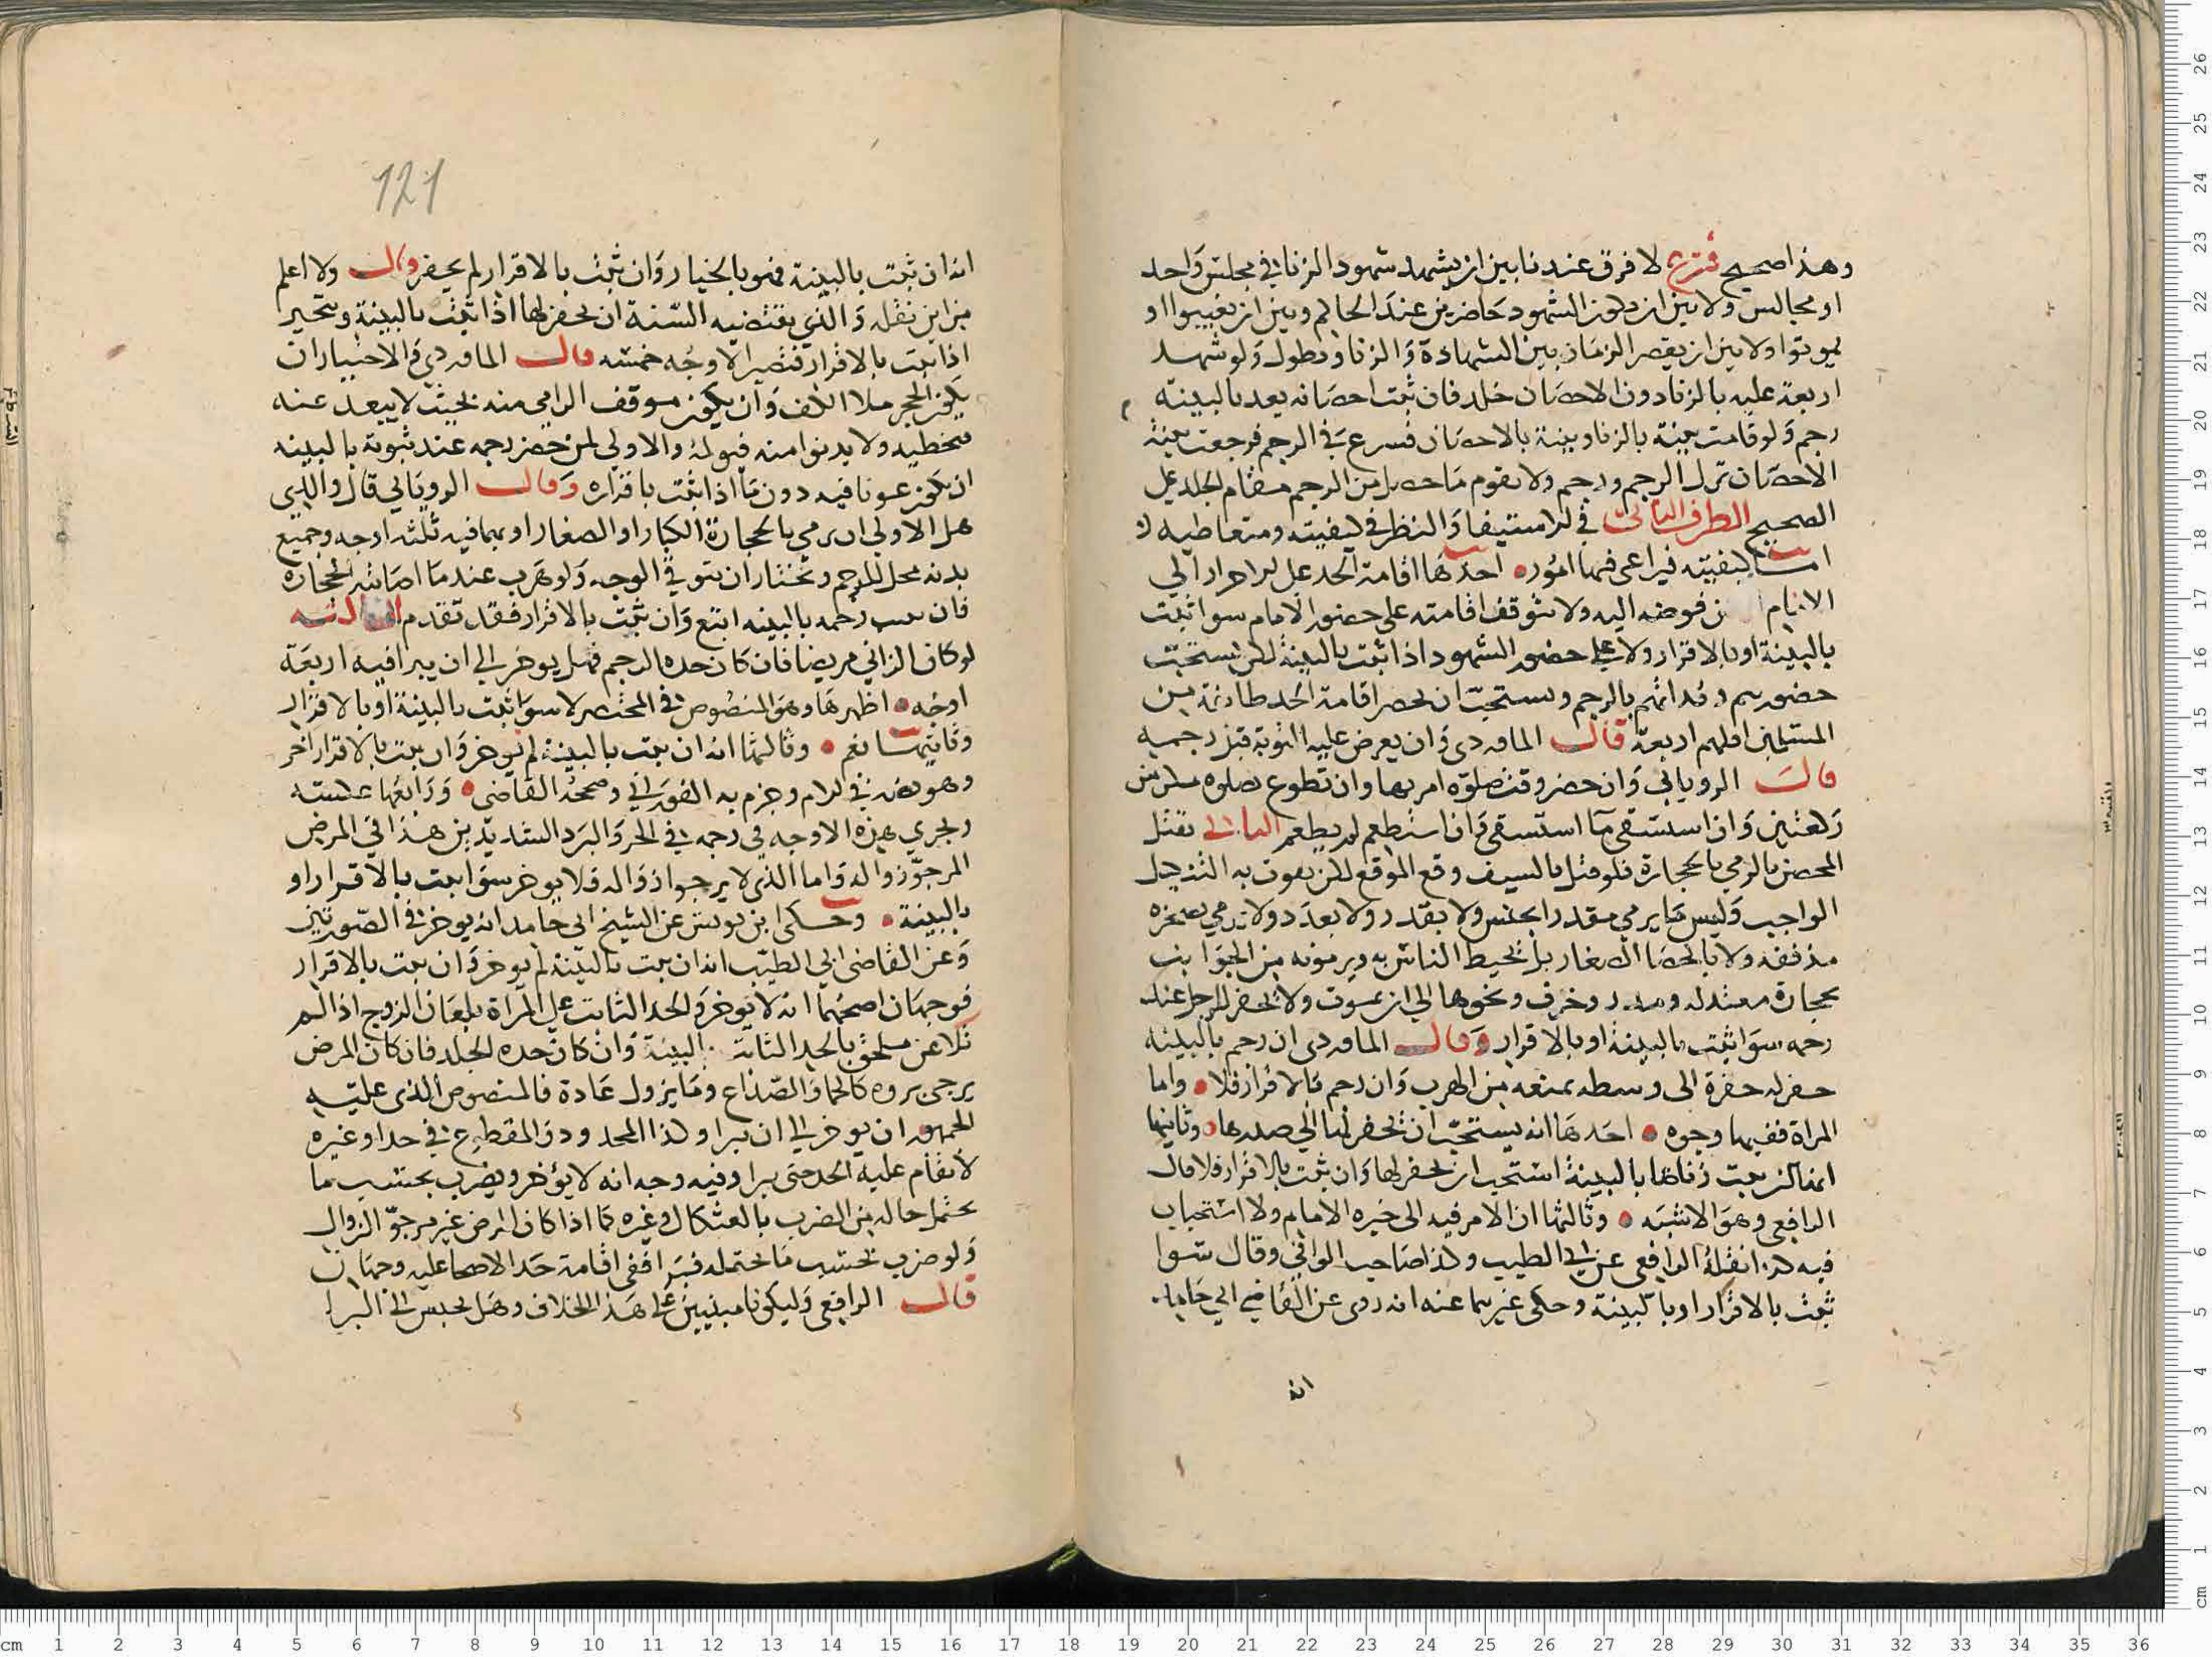 وهذا صحيح فرع لا فرق عندنا بين ان يشهد شهود الزنا في مجلس واحد
او مجالس ولا بين ان يكون الشهود حاضرين عند الحاكم وبين ان يغيبوا او
يموتوا ولا بين ان يقصر الزمان بين الشهادة والزنا او يطول ولو شهد
اربعة عليه بالزنا دون الاحصان جلد فان ثبت احصانه بعد بالبينة
رجم ولو قامت بينة بالزنا وبينة بالاحصان فشرع في الرجم فرجعت بينة
الاحصان ترك الرجم ولا يقوم ما حصل من الرجم مقام الجلد على
الصحيح الطرف الثاني في الاستيفا والنظر في كيفيته ومتعاطيه
اما كيفيته فيراعى فيها امور احدها اقامة الحد على الاحرار الى
الامام فوضه اليه ولا يتوقف اقامته على حضور الامام سوا ثبت
بالبينة او بالاقرار ولا على حضور الشهود اذا ثبت بالبينة لكن يستحب
حضورهم بالرجم ويستحب ان يحضر اقامة الحد طائفة من
المسلمين اقلهم اربعة قال الماوردي وان يعرض عليه التوبة قبل رجمه
قال الروياني وان حضر وقت صلوة امر بها وان تطوع
ركعتين وان استسقى ما استسقي وان استطعم لم يطعم الثاني يقتل
المحصن بالرمي بالحجارة فلو قتل بالسيف وقع الموقع لكن يفوت به التنكيل
الواجب وليس لما يرمي مقدرا بجنس ولا بقدر ولا بعدد ولا يرمي بصخرة
مذففه ولا بالحصا الصغار بل يحيط الناس به ويرمونه من الجوانب
بحجارة معتدلة ومدر وخزف ونحوها الى ان يموت ولا يحفر للرجل عند
رجمه سوا ثبت بالبينة او بالاقرار وقال الماوردي ان رجم بالبينة
حفر له حفرة الى وسطه يمنعه من الهرب وان رجم بالاقرار فلا واما
المراة ففيها وجوه احدها انه يستحب ان يحفر لها الى صدرها وثانيها
ثبت زناها بالبينة استحب ان يحفر لها وان ثبت بالاقرار فلا قال
الرافعي وهو الاشبه وثالثها ان الامر فيه الى خيره الامام ولا استحباب
فيه كذا نقله الرافعي عن ابي الطيب وكذا صاحب الوافي وقال سوا
ثبت بالاقرار او بالبينة وحكى غيرهما عنه انه روى عن القاضي ابي حامد
انه
121
انه ان ثبت بالبينة فهو بالخيار وان ثبت بالاقرار لم يحفر وقال ولا اعلم
من اين نقله والذي يقتضيه السنة ان يحفر لها اذا ثبت بالبينة ويتخير
اذا ثبت بالاقرار فتصير الاوجه خمسه قال الماوردي والاختيار ان
يكون الحجر ملا الكف وان يكون موقف الرامي منه بحيث لا يبعد عنه
فيخطيه ولا يدنوا منه فيولمه والاولى لمن حضر رجمه عند ثبوته بالبينه
ان يكون عونا فيه دون ما اذا ثبت باقراره وقال الروياني قال والدي
هل الاولى ان يرمي بالحجارة الكبار او الصغار او بما فيه ثلثه اوجه وجميع
بدنه محل للرجم ونختار ان يتوقى الوجه ولو هرب عند ما اصابته الحجارة
فان ثبت رجمه بالبينه اتبع وان ثبت بالاقرار فقد تقدم الثالثه
لو كان الزاني مريضا فان كان حده الرجم فهل يوخر الى ان يبرا فيه اربعة
اوجه اظهرها وهو المنصوص في المختصر لا سوا ثبت بالبينة او بالاقرار
وثانيها نعم وثالثها انه ان ثبت بالبينة لم يوخر وان ثبت بالاقرار اخر
وهو نصه في الام وجزم به الفوراني وصححه القاضي ورابعها عكسه
ويجري هذه الاوجه في رجمه في الحر والبرد الشديدين هذا في المرض
المرجو زواله واما الذي لا يرجوا زواله فلا يوخر سوا ثبت بالاقرار او
بالبينة وحكى ابن يونس عن الشيخ ابي حامد انه يوخر في الصورتين
وعن القاضي ابي الطيب انه ان ثبت بالبينة لم يوخر وان ثبت بالاقرار
فوجهان اصحهما انه لا يوخر والحد الثابت على المراة بلعان الزوج اذا لم
تلاعن ملحق بالحد الثابت بالبينة وان كان حده الجلد فان كان المرض
يرجى بروه كالحما والصداع وما يزول عادة فالمنصوص الذي عليه
الجمهور ان يوخر الى ان يبرا وكذا المجلود والمقطوع في حد او غيره
لا يقام عليه الحد حتى يبرا وفيه وجه انه لا يؤخر ويضرب بحسب ما
يحتمل حاله من الضرب بالعثكال وغيره كما اذا كان المرض غير مرجو الزوال
ولو ضرب بحسب ما يحتمله فبرا ففي اقامة حد الاصحا عليه وجهان
قال الرافعي وليكونا مبنيين على هذا الخلاف وهل يحبس الى البرا